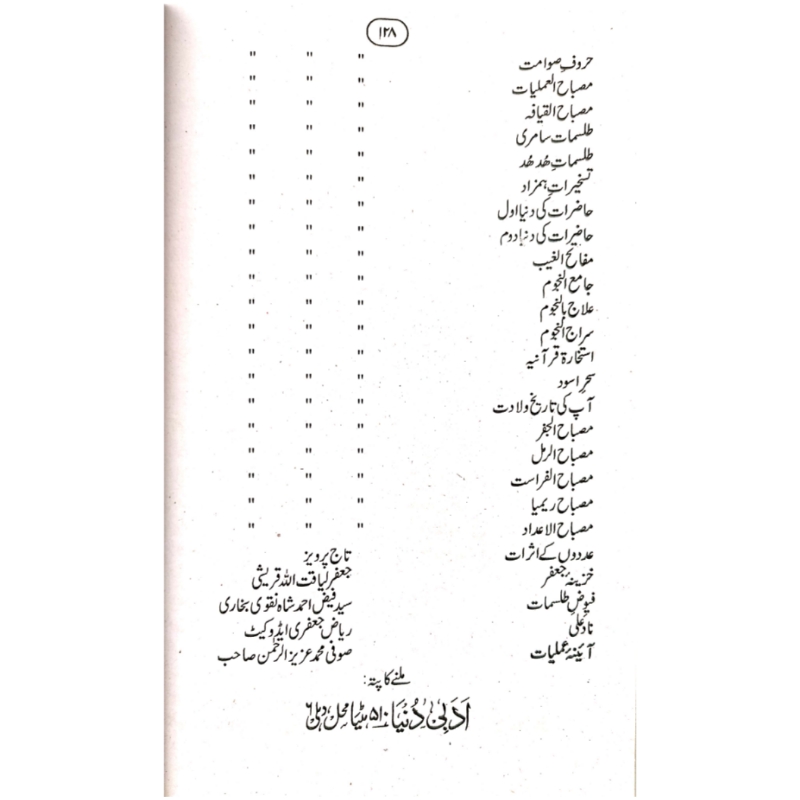 ۱۲۸
حروفِ صوامت " " "
مصباح العملیات " " "
مصباح القیافہ " " "
طلسمات سامری " " "
طلسماتِ ھُد ھُد " " "
تسخیراتِ ہمزاد " " "
حاضرات کی دنیا اول " " "
حاضرات کی دنیا دوم " " "
مفاتح الغیب " " "
جامع النجوم " " "
علاج بالنجوم " " "
سراج النجوم " " "
استخارۃ قرآنیہ " " "
سحرِ اسود " " "
آپ کی تاریخ ولادت " " "
مصباح الجفر " " "
مصباح الرمل " " "
مصباح الفراست " " "
مصباح ریمیا " " "
مصباح الاعداد " " "
عددوں کے اثرات تاج پرویز
خزینۂ جعفر جعفر لیاقت اللہ قریشی
فیوضِ طلسمات سید فیض احمد شاہ نقوی بخاری
نادِ علی ریاض جعفری ایڈوکیٹ
آئینۂ عملیات صوفی محمد عزیز الرحمن صاحب
ملنے کا پتہ:
اَدَبی دُنیَا ۵۱۰ مٹیا محل، دہلی ۶